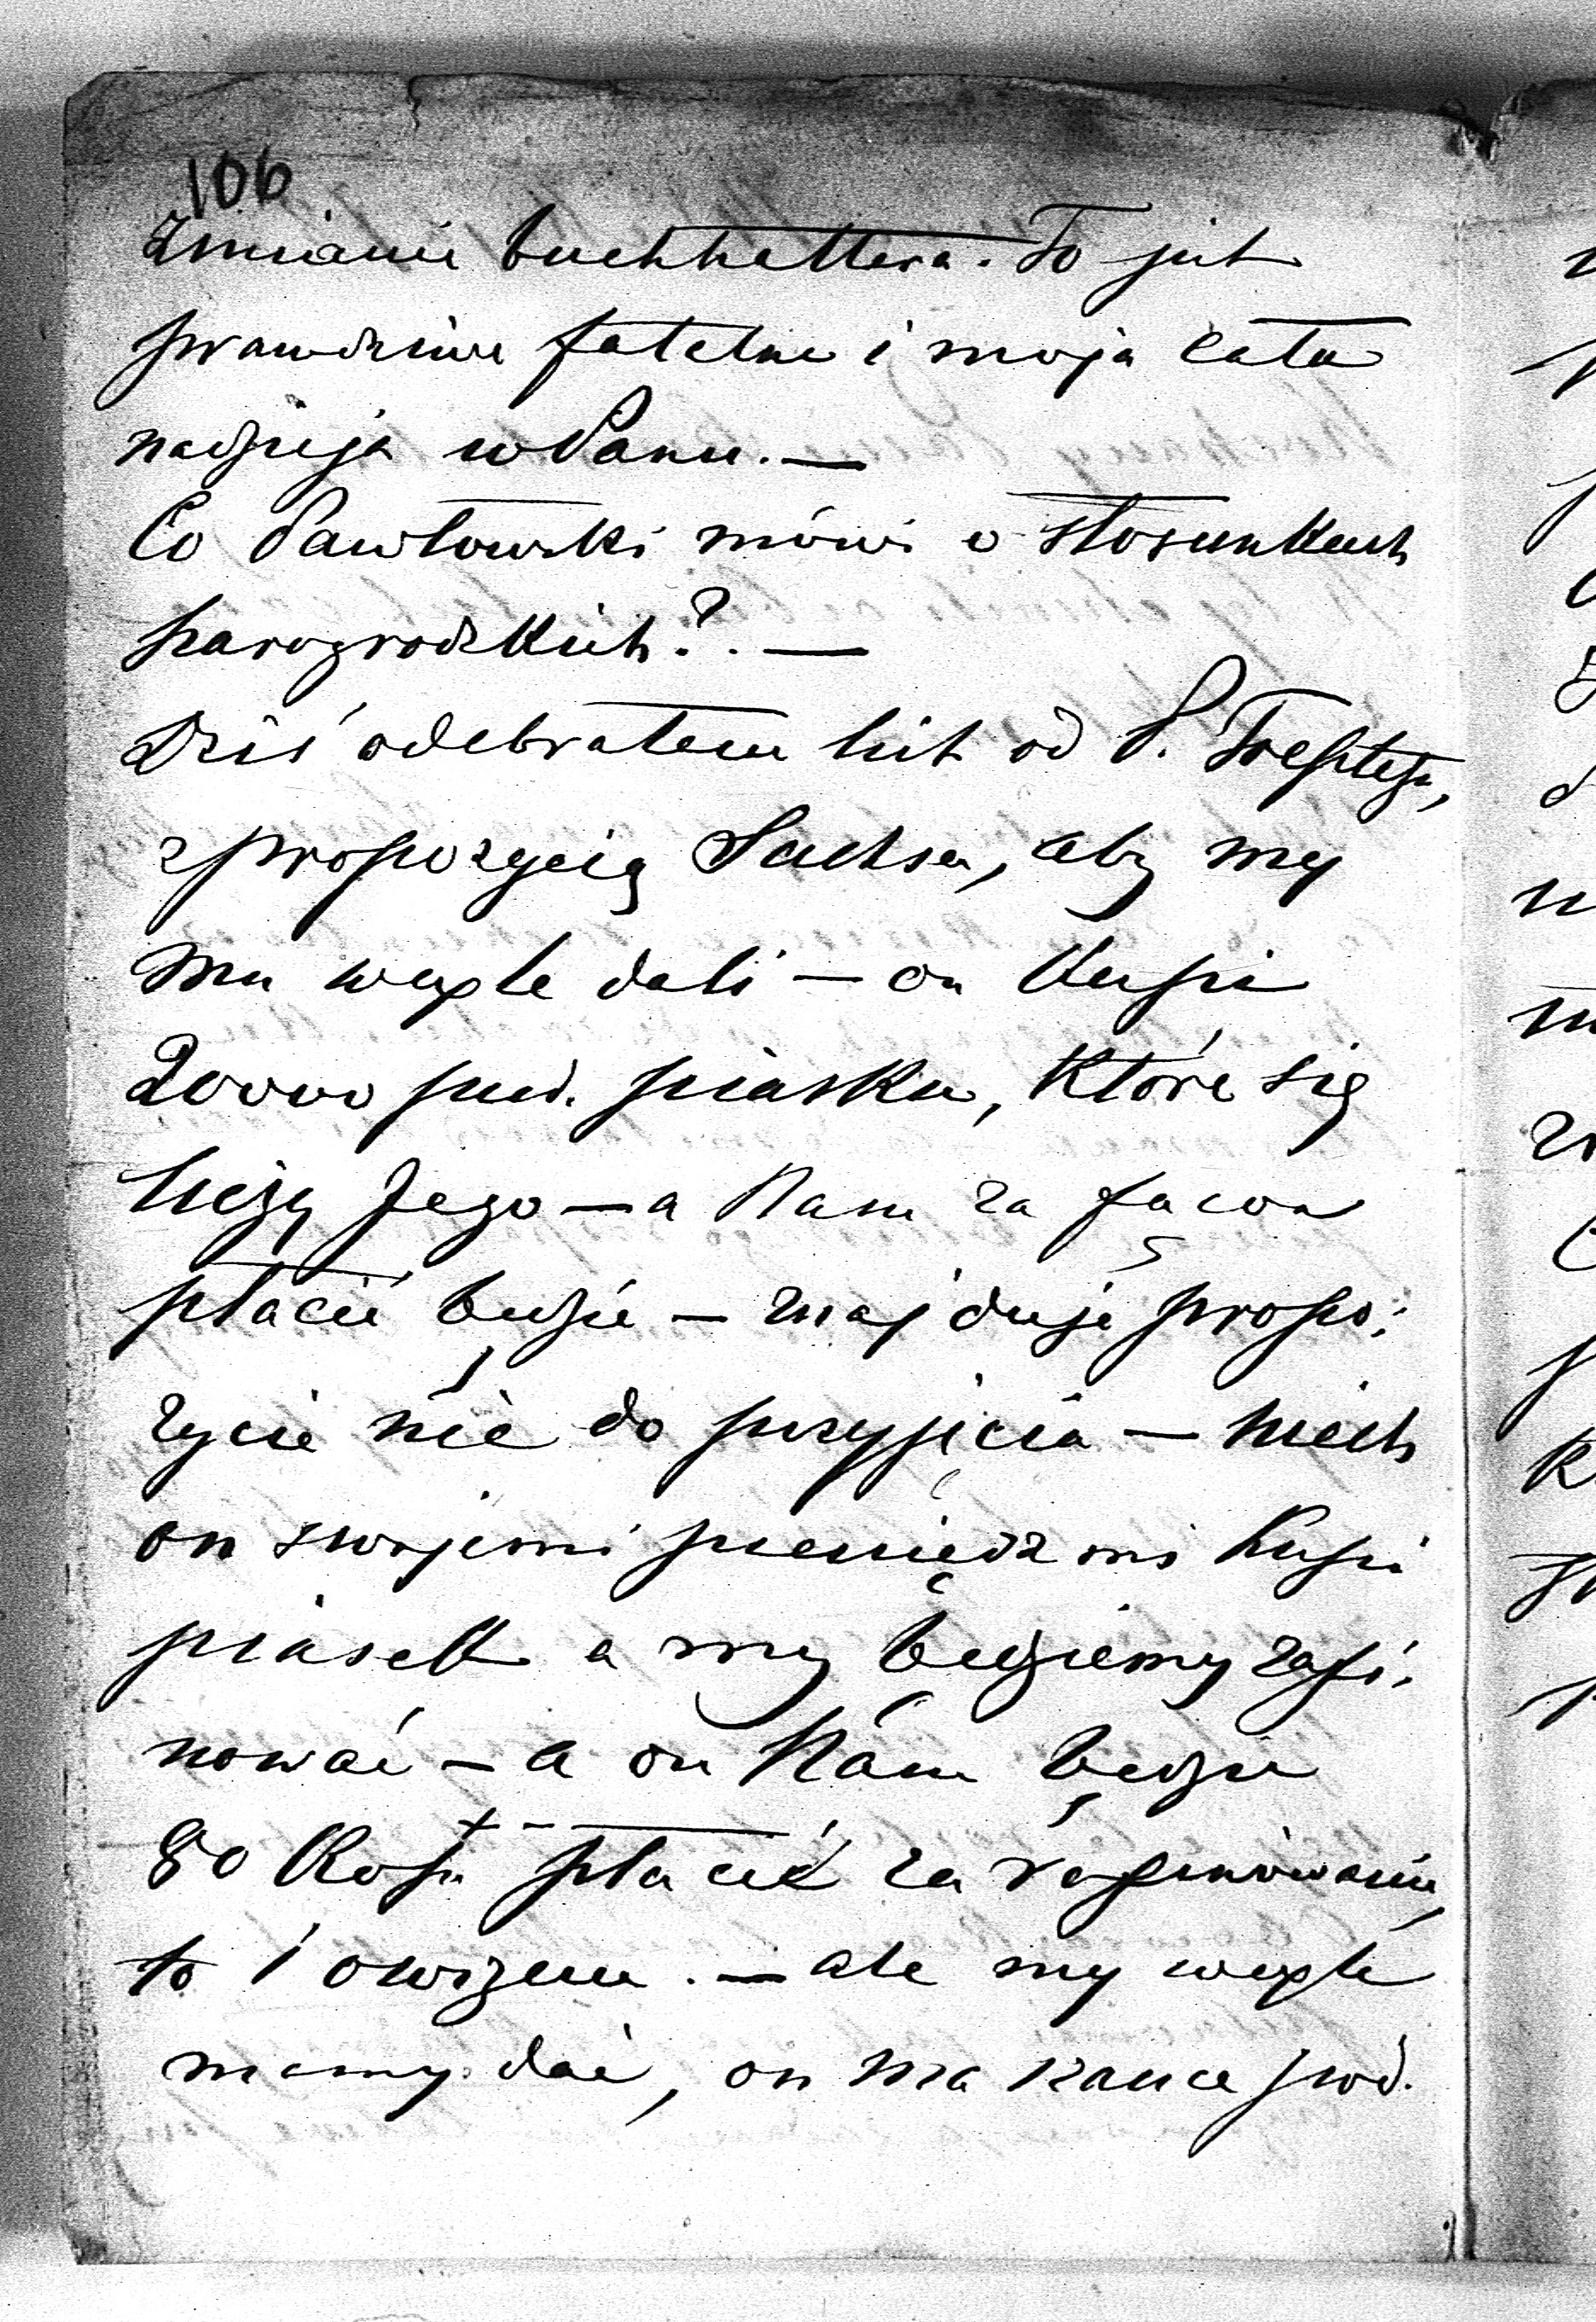 106
zmianie buchhaltera. To jest
prawdziwe fatalne i moja cała
nadzieja w Panu. —
Co Pawłowski mówi o stosunkach
parogrodzkich? . —
Dziś odebrałem list od P.
z propozycią Sachsa, aby my
mu wexle dali — on kupi
20000 pud. piasku, które się
liczy Jego — a Nam za façon
płacić będzie — znajduję propo:
zycie nie do przyjęcia — niech
on swojemi pieniędzmi kupi
piasek a my będziemy rafi:
nować — a on Nam będzie
80 kop. płacić za rafinowanie,
to i owszem. — ale my wexle
mamy dać, on ma